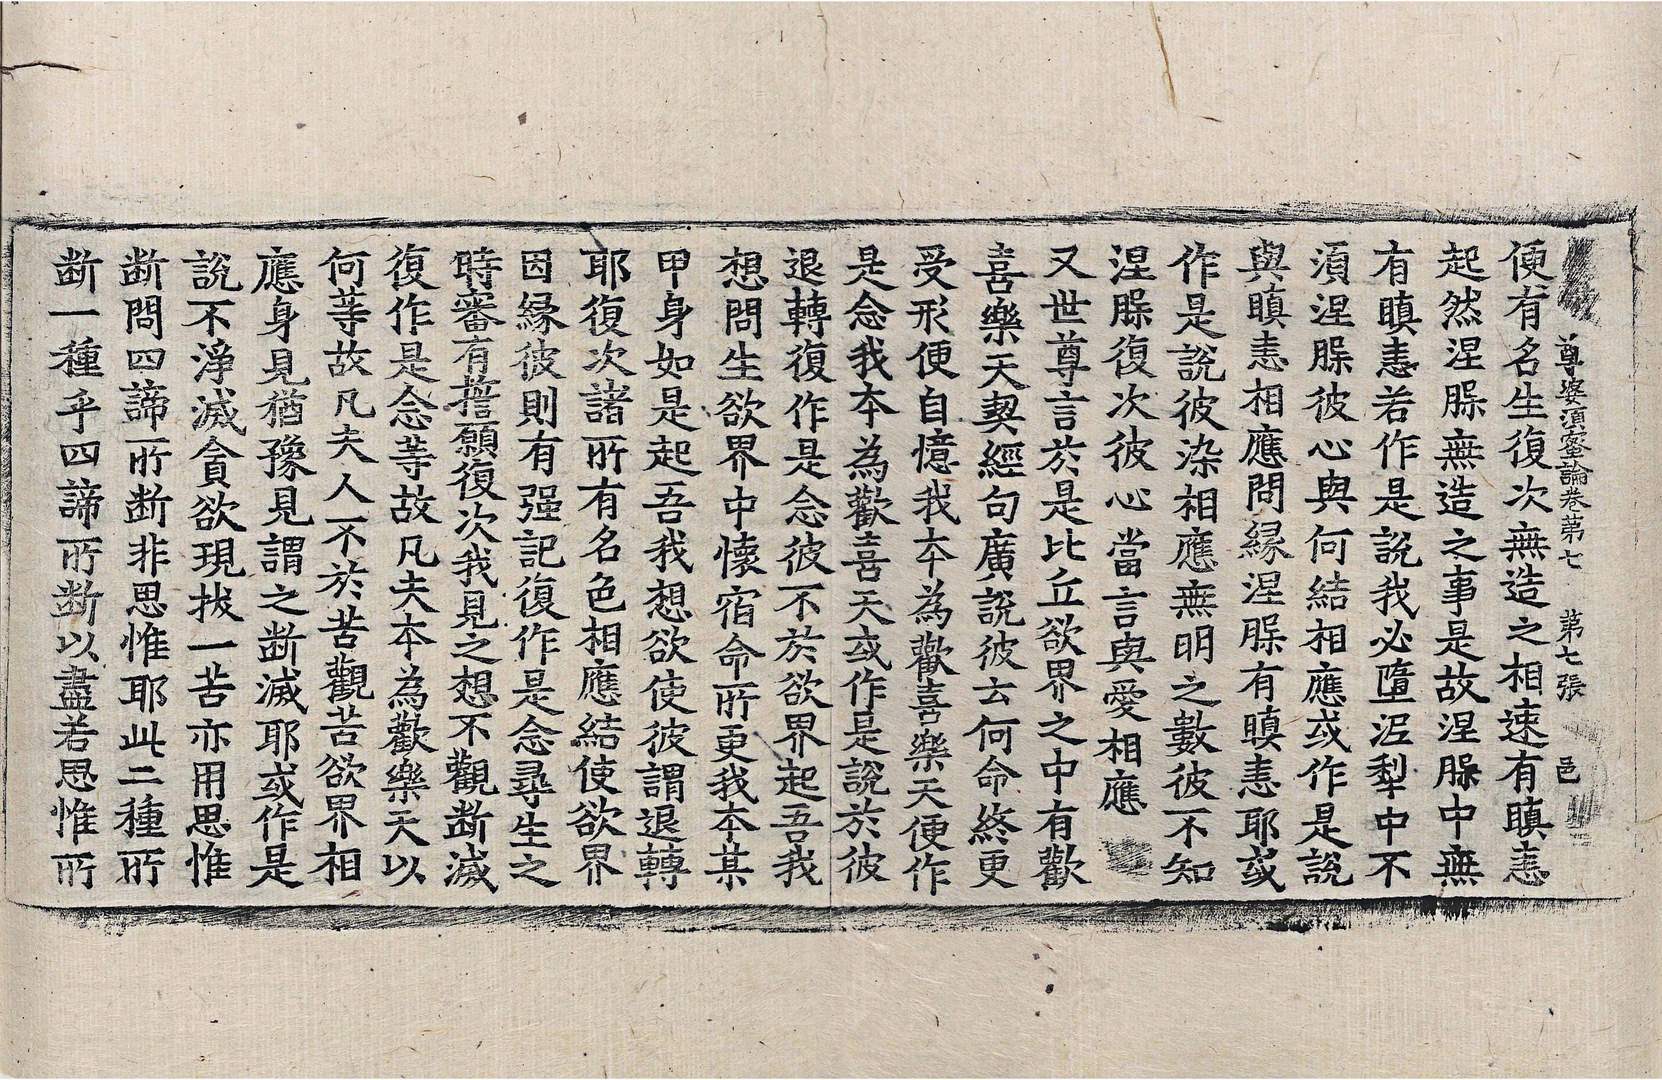 尊婆須蜜論卷第七　第七張　邑
便有名生復次無造之相速有瞋恚
起然涅槃無造之事是故涅槃中無
有瞋恚若作是說我必墮泥犁中不
須涅槃彼心與何結相應或作是說
與瞋恚相應問緣涅槃有瞋恚耶或
作是說彼染相應無明之數彼不知
涅槃復次彼心當言與愛相應
又世尊言於是比丘欲界之中有歡
喜樂天契經句廣說彼云何命終更
受形便自憶我本為歡喜樂天便作
是念我本為歡喜天或作是說於彼
退轉復作是念彼不於欲界起吾我
想問生欲界中懷宿命所更我本某
甲身如是起吾我想欲使彼謂退轉
耶復次諸所有名色相應結使欲界
因緣彼則有强記復作是念尋生之
時審有誓願復次我見之想不觀斷滅
復作是念等故凡夫本為歡樂天以
何等故凡夫人不於苦觀苦欲界相
應身見猶豫見謂之斷滅耶或作是
說不淨滅貪欲現拔一苦亦用思惟
斷問四諦所斷非思惟耶此二種所
斷一種乎四諦所斷以盡若思惟所